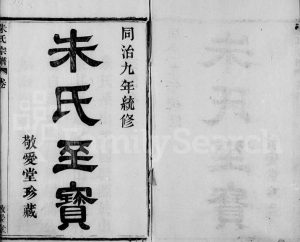 同治九年統修
朱氏至寶
敬愛堂珍藏
朱氏宗譜
卷
FamilySearch